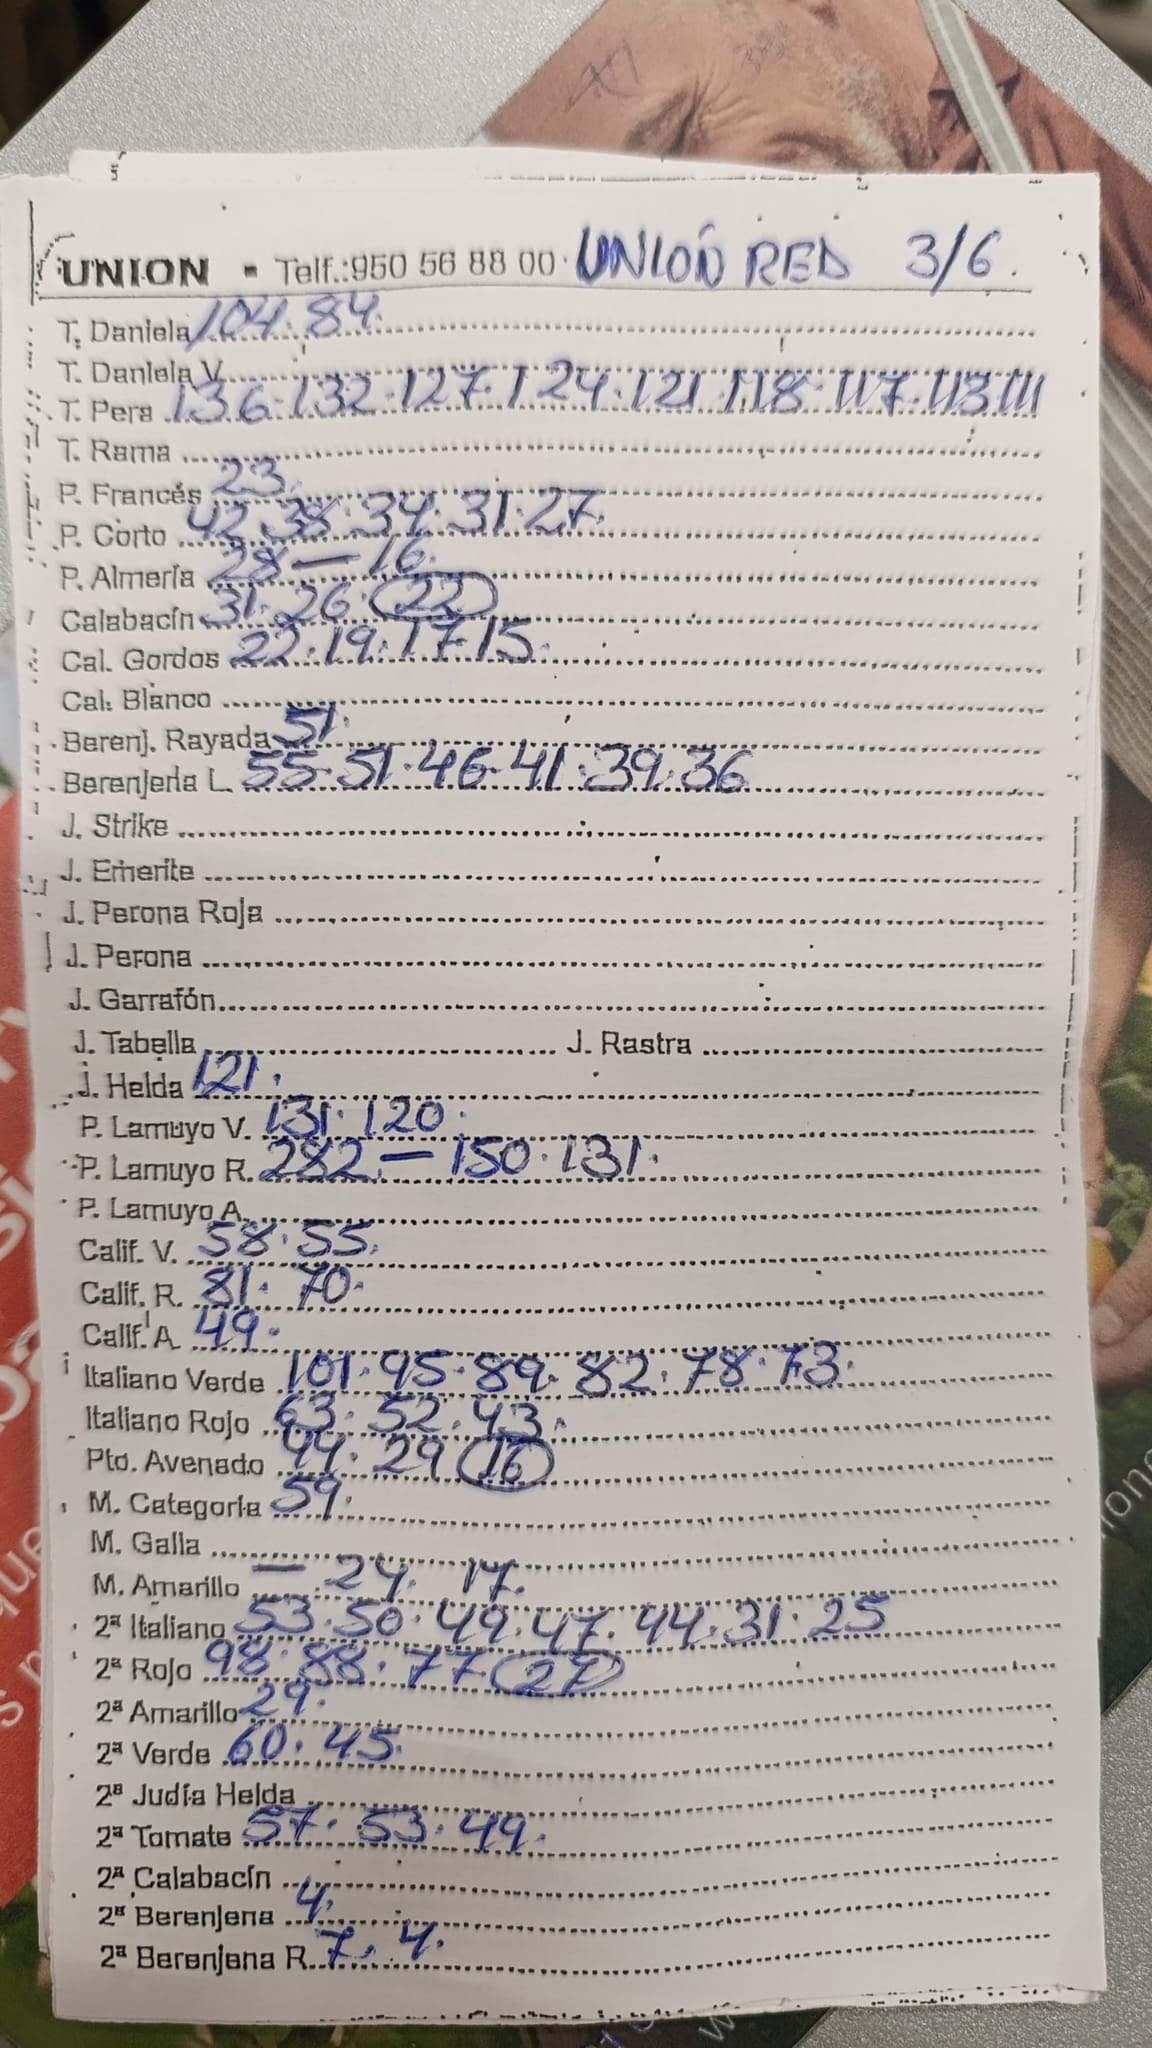 UNION ▪ Telf.:950 56 88 00 · UNION RED 3/6.
T. Daniela 104. 84.
T. Daniela V.
T. Pera 136. 132. 127. 124. 121. 118. 117. 113. 111
T. Rama
P. Francés 23.
P. Corto 42. 38. 34. 31. 27.
P. Almería 28 — 16.
Calabacín 31. 26. 22
Cal. Gordos 22. 19. 17. 15.
Cal. Blanco
Berenj. Rayada 51.
Berenjena L. 55. 51. 46. 41. 39. 36
J. Strike
J. Emerite
J. Perona Roja
J. Perona
J. Garrafón
J. Tabella J. Rastra
J. Helda 121.
P. Lamuyo V. 131. 120.
P. Lamuyo R. 282. — 150. 131.
P. Lamuyo A.
Calif. V. 58. 55.
Calif. R. 81. 70.
Calif. A. 49.
Italiano Verde 101. 95. 89. 82. 78. 73.
Italiano Rojo 63. 52. 43.
Pto. Avenado 44. 29 16
M. Categoría 59.
M. Galla
M. Amarillo — 24. 17.
2ª Italiano 53. 50. 49. 47. 44. 31. 25
2ª Rojo 98. 88. 77 27
2ª Amarillo 29.
2ª Verde 60. 45.
2ª Judía Helda
2ª Tomate 57. 53. 49.
2ª Calabacín
2ª Berenjena 4.
2ª Berenjena R. 7. 4.